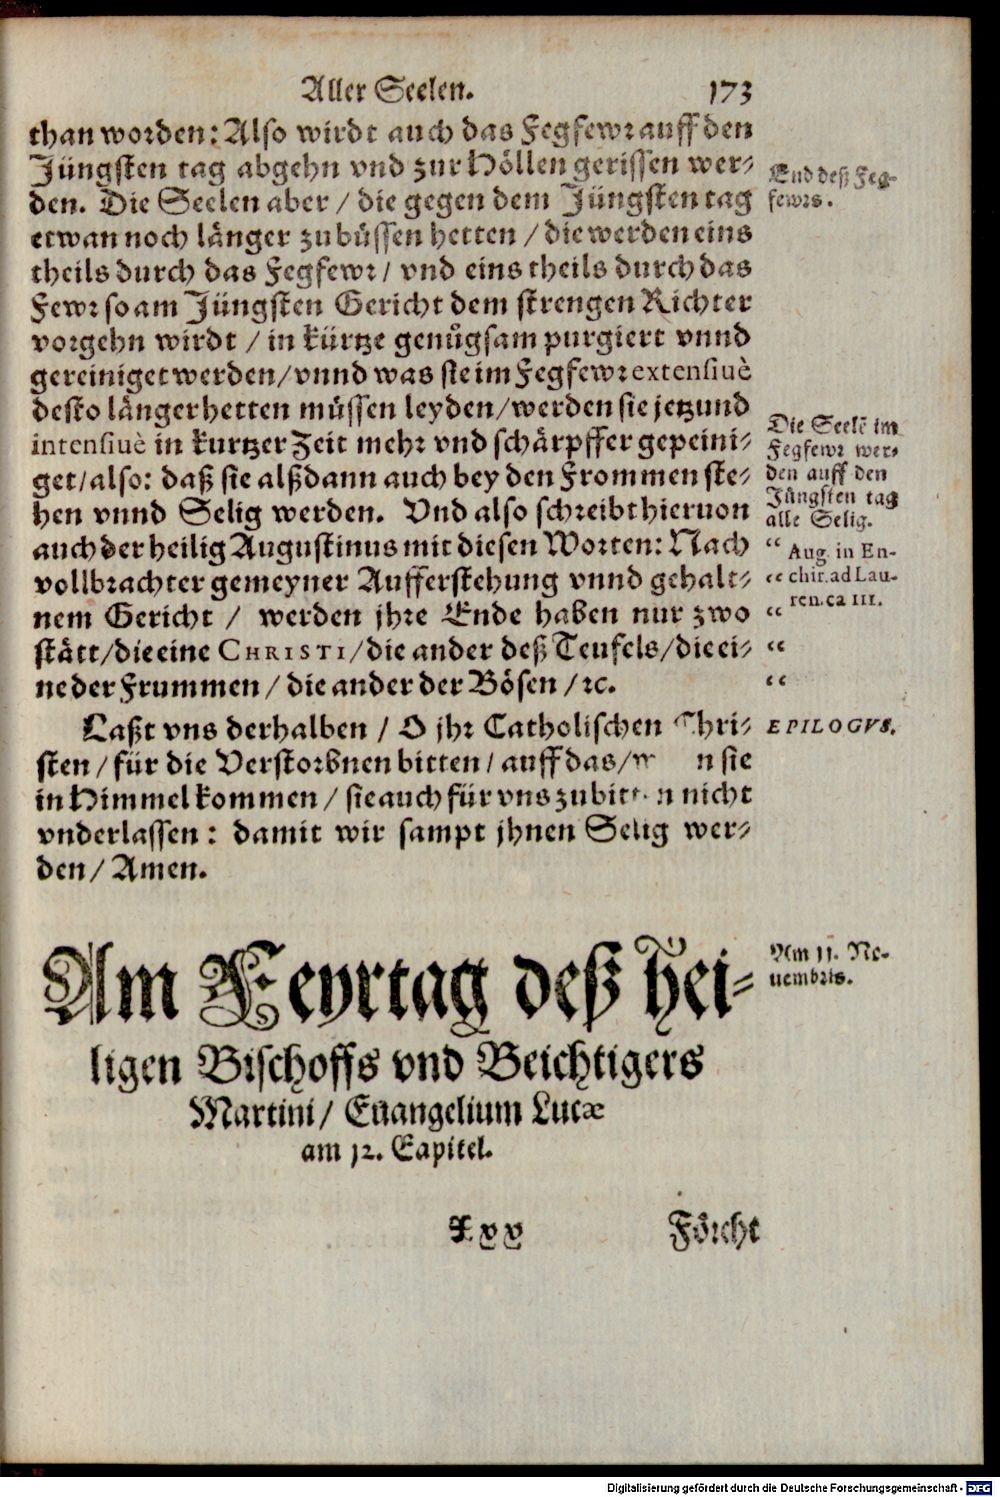 Aller Seelen. 173
than worden: Also wirdt auch das Fegfewr auff den
Jüngsten tag abgehn vnd zur Höllen gerissen wer-
den. Die Seelen aber / die gegen dem Jüngsten tag
etwan noch länger zu büssen hetten / die werden eins
theils durch das Fegfewr / vnd eins theils durch das
Fewr so am Jüngsten Gericht dem strengen Richter
vorgehn wirdt / in kürtze genůgsam purgiert vnnd
gereiniget werden / vnnd was sie im Fegfewr extensiuè
desto länger hetten müssen leyden / werden sie jetzund
intensiuè in kurtzer Zeit mehr vnd schärpffer gepeini-
get / also: daß sie alßdann auch bey den Frommen ste-
hen vnnd Selig werden. Vnd also schreibt hieruon
auch der heilig Augustinus mit diesen Worten: Nach
vollbrachter gemeyner Aufferstehung vnnd gehalt-
nem Gericht / werden jhre Ende haben nur zwo
stätt / die eine CHRISTI / die ander deß Teufels / die ei-
ne der Frummen / die ander der Bösen / ꝛc.
Laßt vns derhalben / O jhr Catholischen Chri-
sten / für die Verstorbnen bitten / auff das / n sie
in Himmel kommen / sie auch für vns zubitten nicht
vnderlassen: damit wir sampt jhnen Selig wer-
den / Amen.
End deß Feg-
fewrs.
Die Seelē im
Fegfewr wer-
den auff den
Jüngsten tag
alle Selig.
“ Aug. in En-
“ chir. ad Lau-
ren. ca 111.
“
“
“
EPILOGVS.
Am Feyrtag deß Hei-
ligen Bischoffs vnd Beichtigers
Martini / Euangelium Lucæ
am 12. Capitel.
Am 11. No-
uembris.
Xxx Förcht
Digitalisierung gefördert durch die Deutsche Forschungsgemeinschaft - DFG